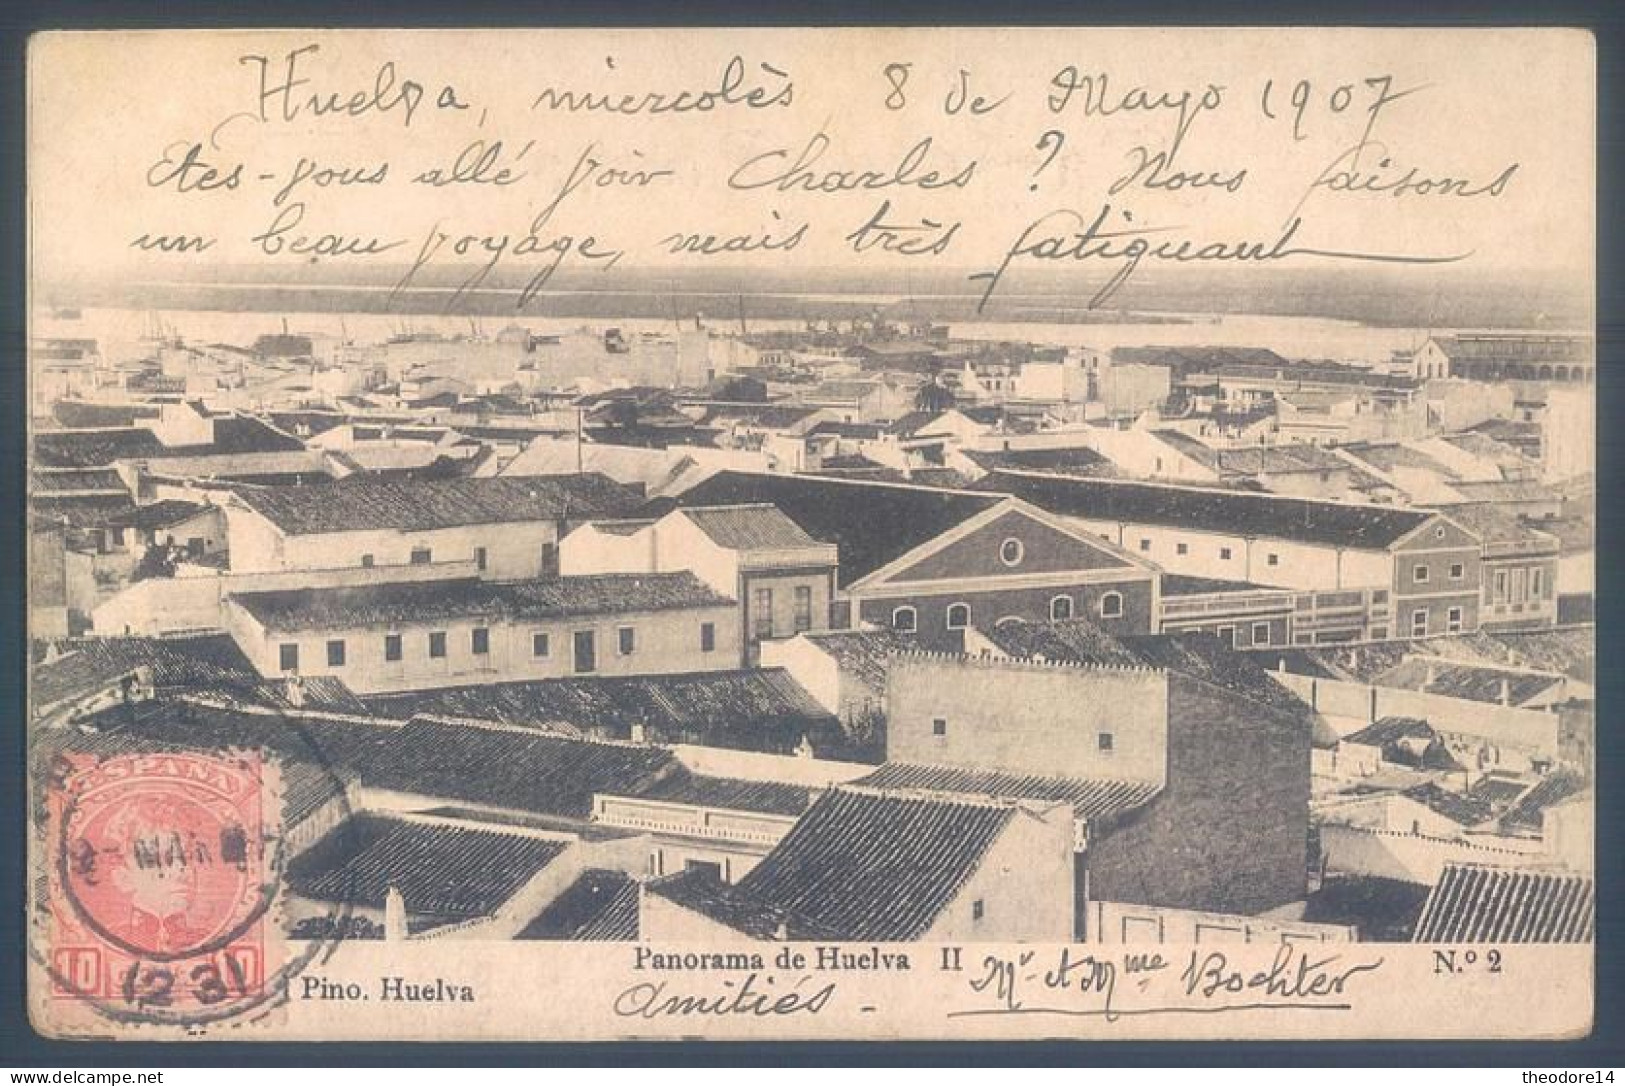 Huelva, miercolès 8 de Mayo 1907
Etes-vous allé voir Charles ? Nous faisons
un beau voyage, mais très fatiguant
ESPAÑA
MAY
10 10
(23)
Pino. Huelva
Panorama de Huelva II
N.º 2
Amitiés - Mr et Mme Bochter
theodore14